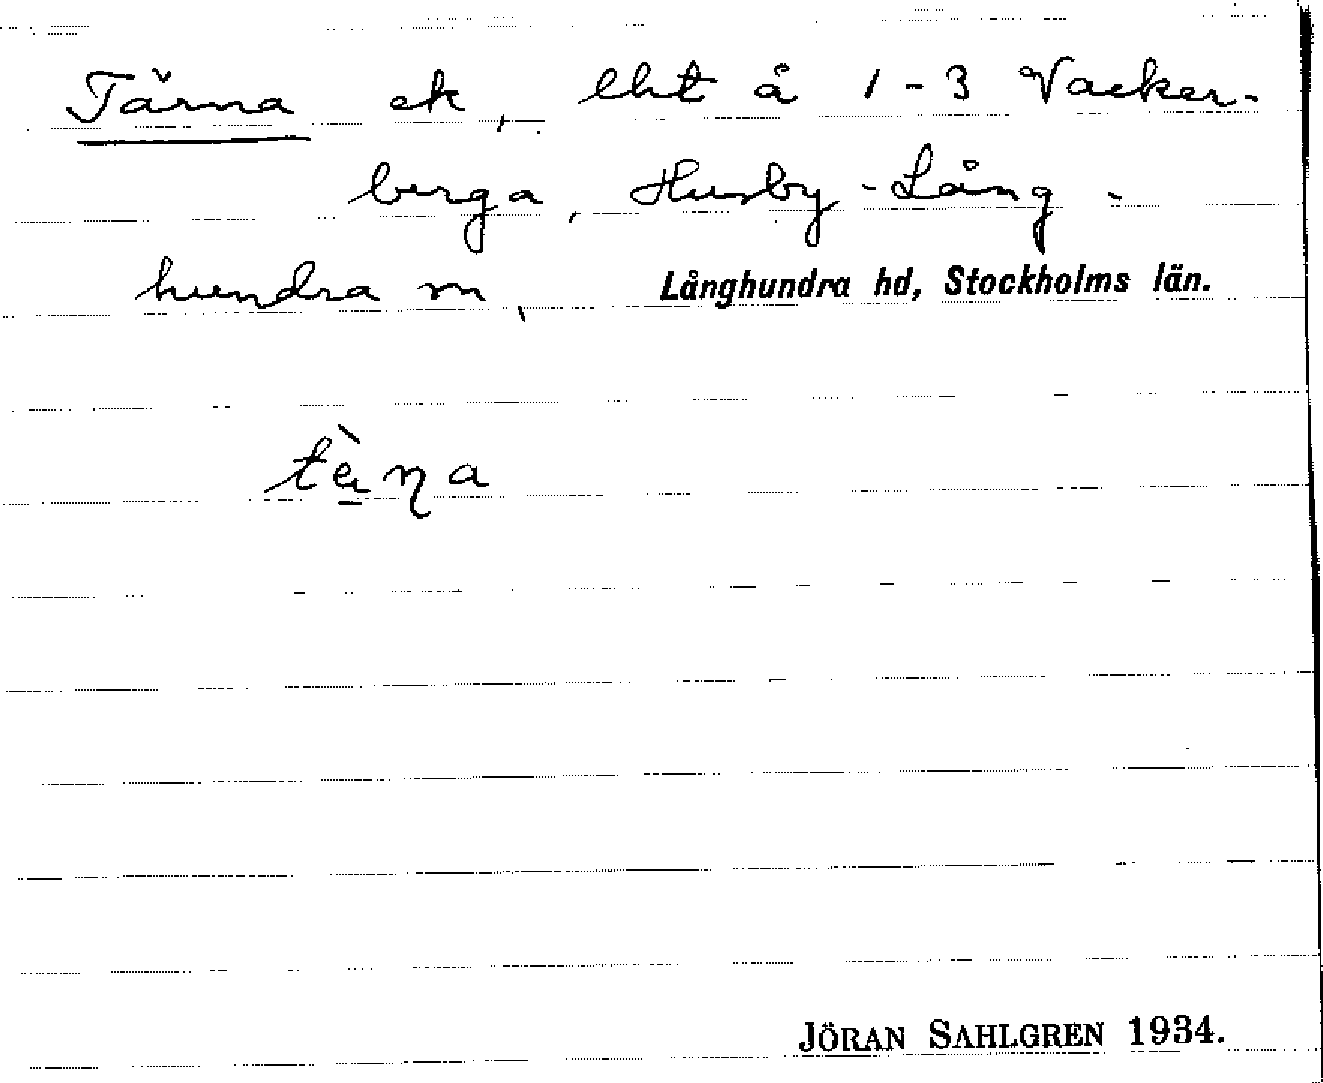 Tärna ek, lht å 1-3 Vacker-
berga, Husby-Lång-
hundra sn, Långhundra hd, Stockholms län.
tè̱ɳa
JÖRAN SAHLGREN 1934.